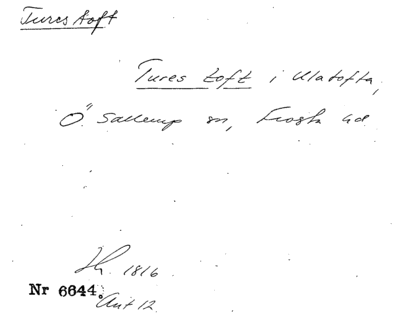 Tures toft
Tures toft i Ulatofta,
Ö. Sallerup sn, Frosta hd.
1816
Nr 6644.
Ant 12